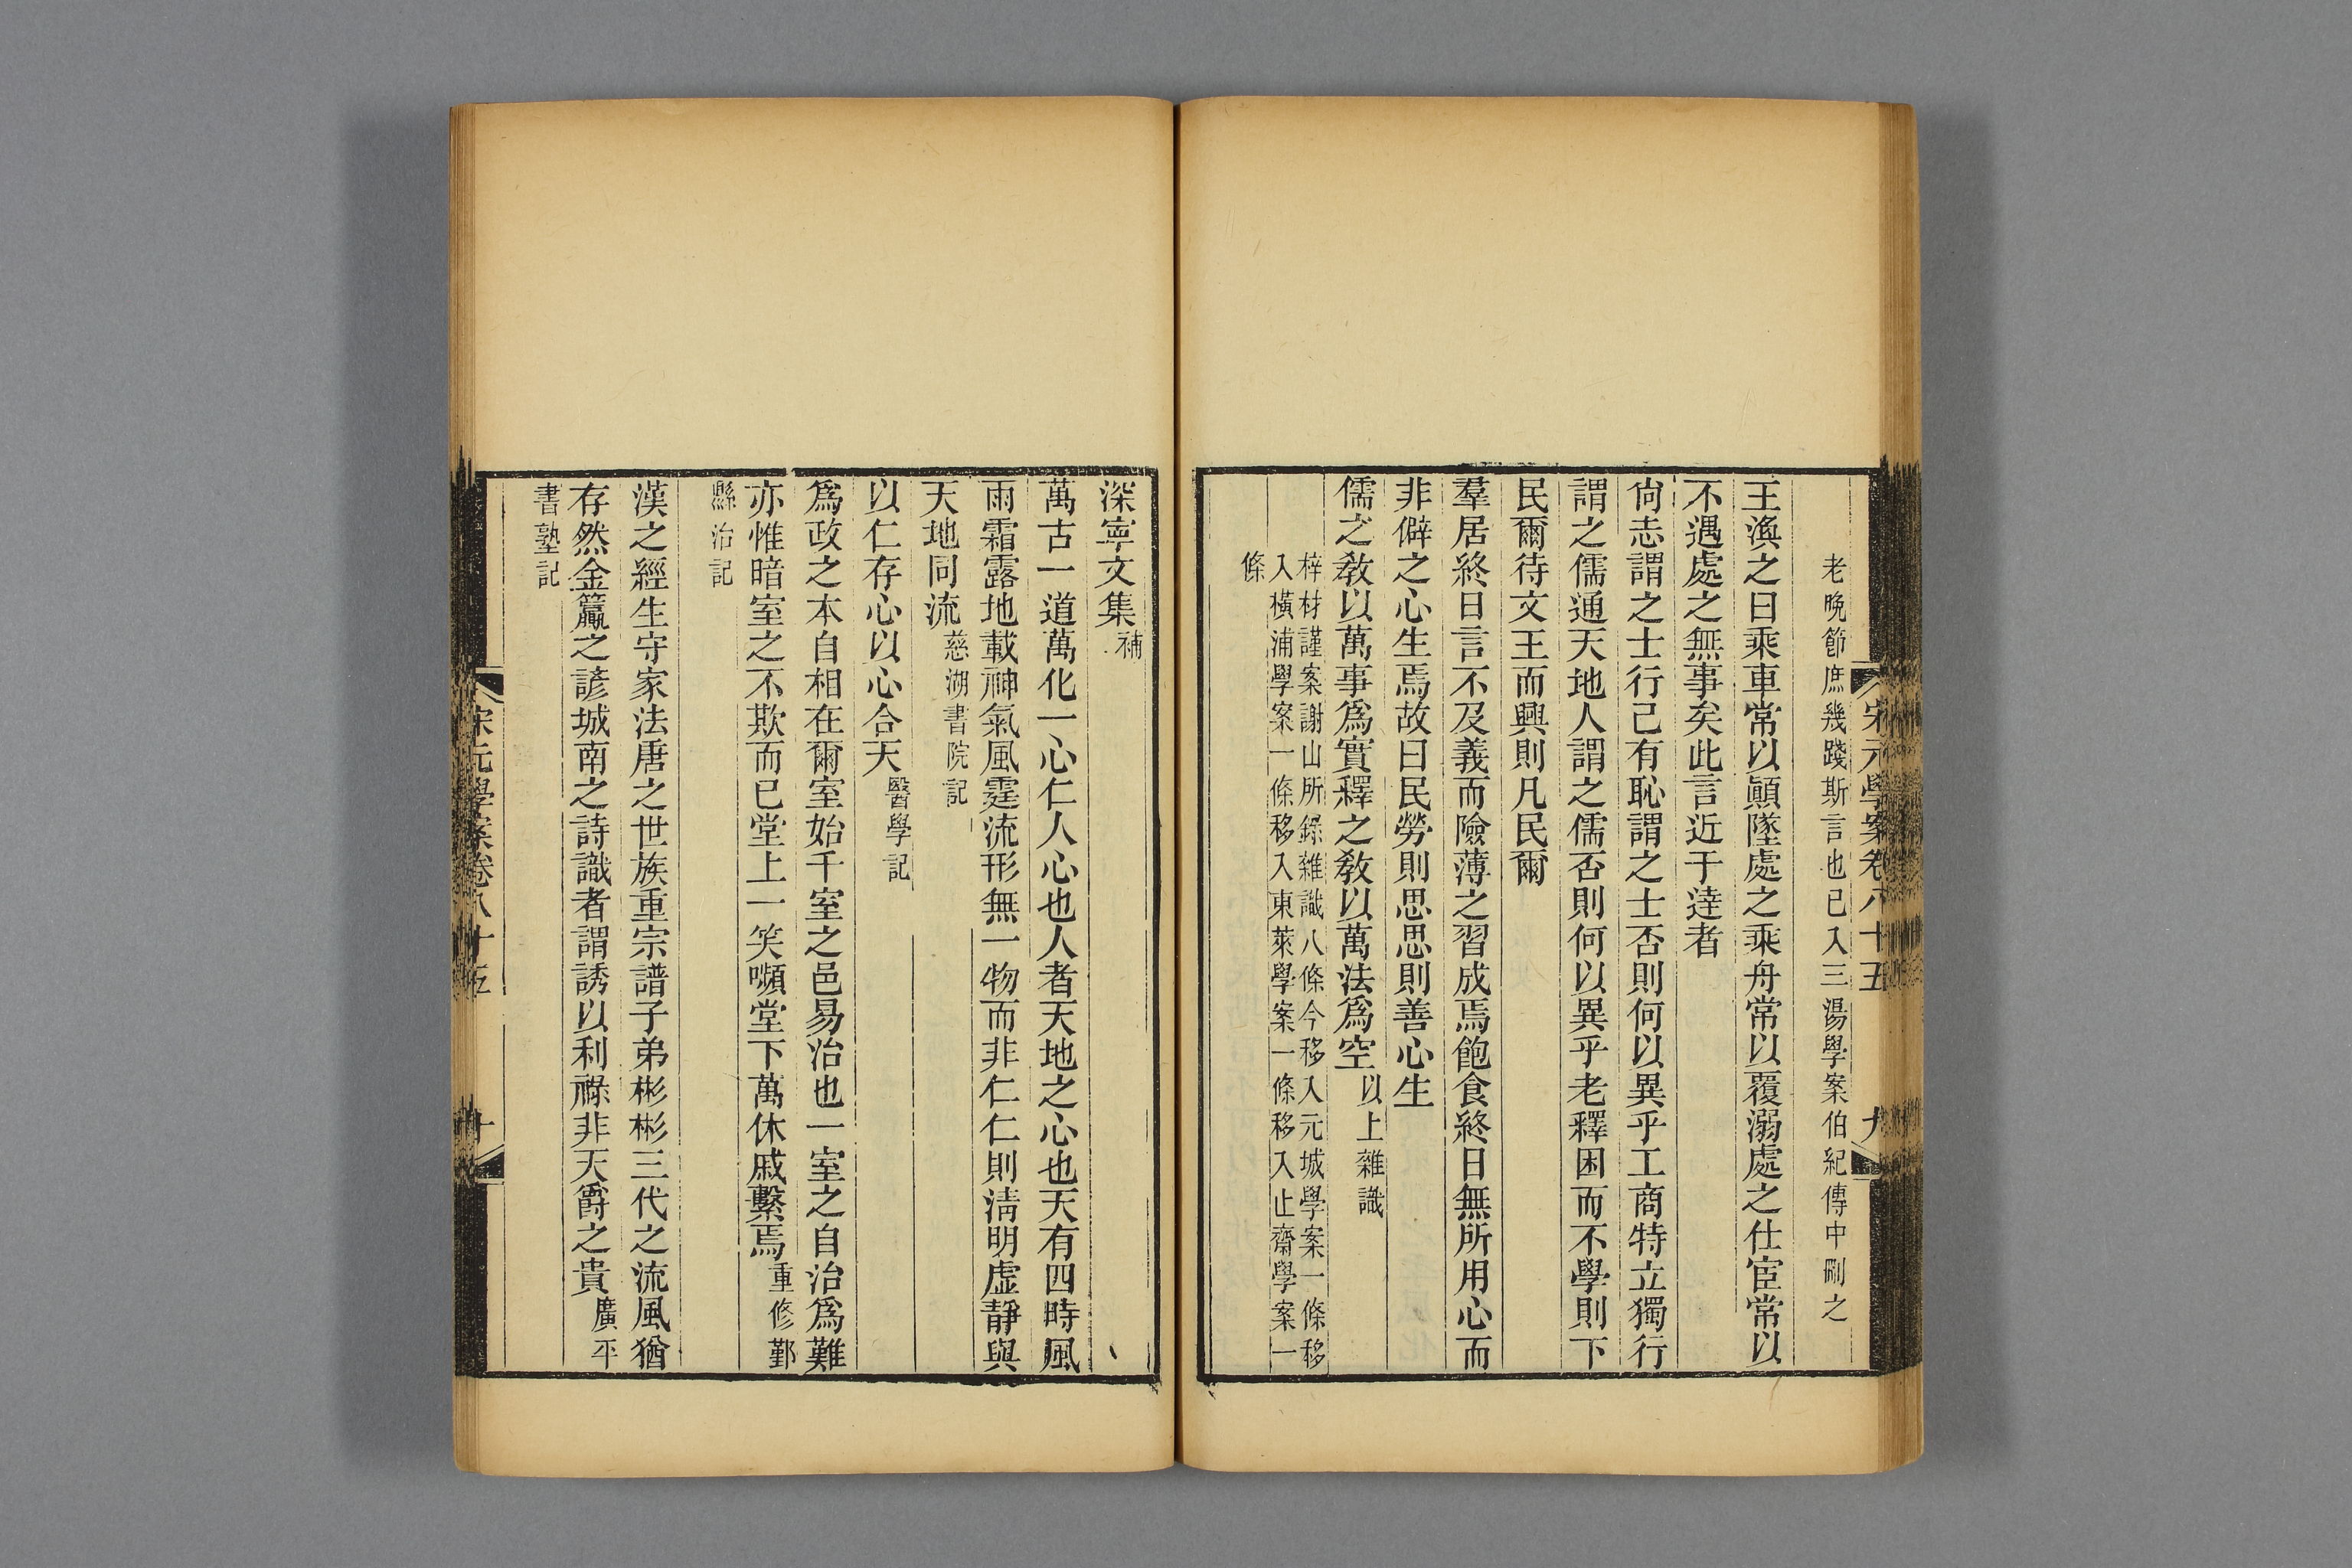 宋元學案卷八十五
九
老晚節庶幾踐斯言也已入三湯學案伯紀傳中刪之
王渙之曰乘車常以顚墜處之乘舟常以覆溺處之仕宦常以
不遇處之無事矣此言近于達者
尙志謂之士行己有恥謂之士否則何以異乎工商特立獨行
謂之儒通天地人謂之儒否則何以異乎老釋困而不學則下
民爾待文王而興則凡民爾
羣居終日言不及義而險薄之習成焉飽食終日無所用心而
非僻之心生焉故曰民勞則思思則善心生
儒之敎以萬事爲實釋之敎以萬法爲空以上雜識
梓材謹案謝山所錄雜識八條今移入元城學案一條移
入橫浦學案一條移入東萊學案一條移入止齋學案一
條
深寧文集補
萬古一道萬化一心仁人心也人者天地之心也天有四時風
雨霜露地載神氣風霆流形無一物而非仁仁則淸明虛靜與
天地同流慈湖書院記
以仁存心以心合天醫學記
爲政之本自相在爾室始千室之邑易治也一室之自治爲難
亦惟暗室之不欺而已堂上一笑嚬堂下萬休戚繫焉重修鄞
縣治記
漢之經生守家法唐之世族重宗譜子弟彬彬三代之流風猶
存然金籯之諺城南之詩識者謂誘以利祿非天爵之貴廣平
書塾記
宋元學案卷八十五
十